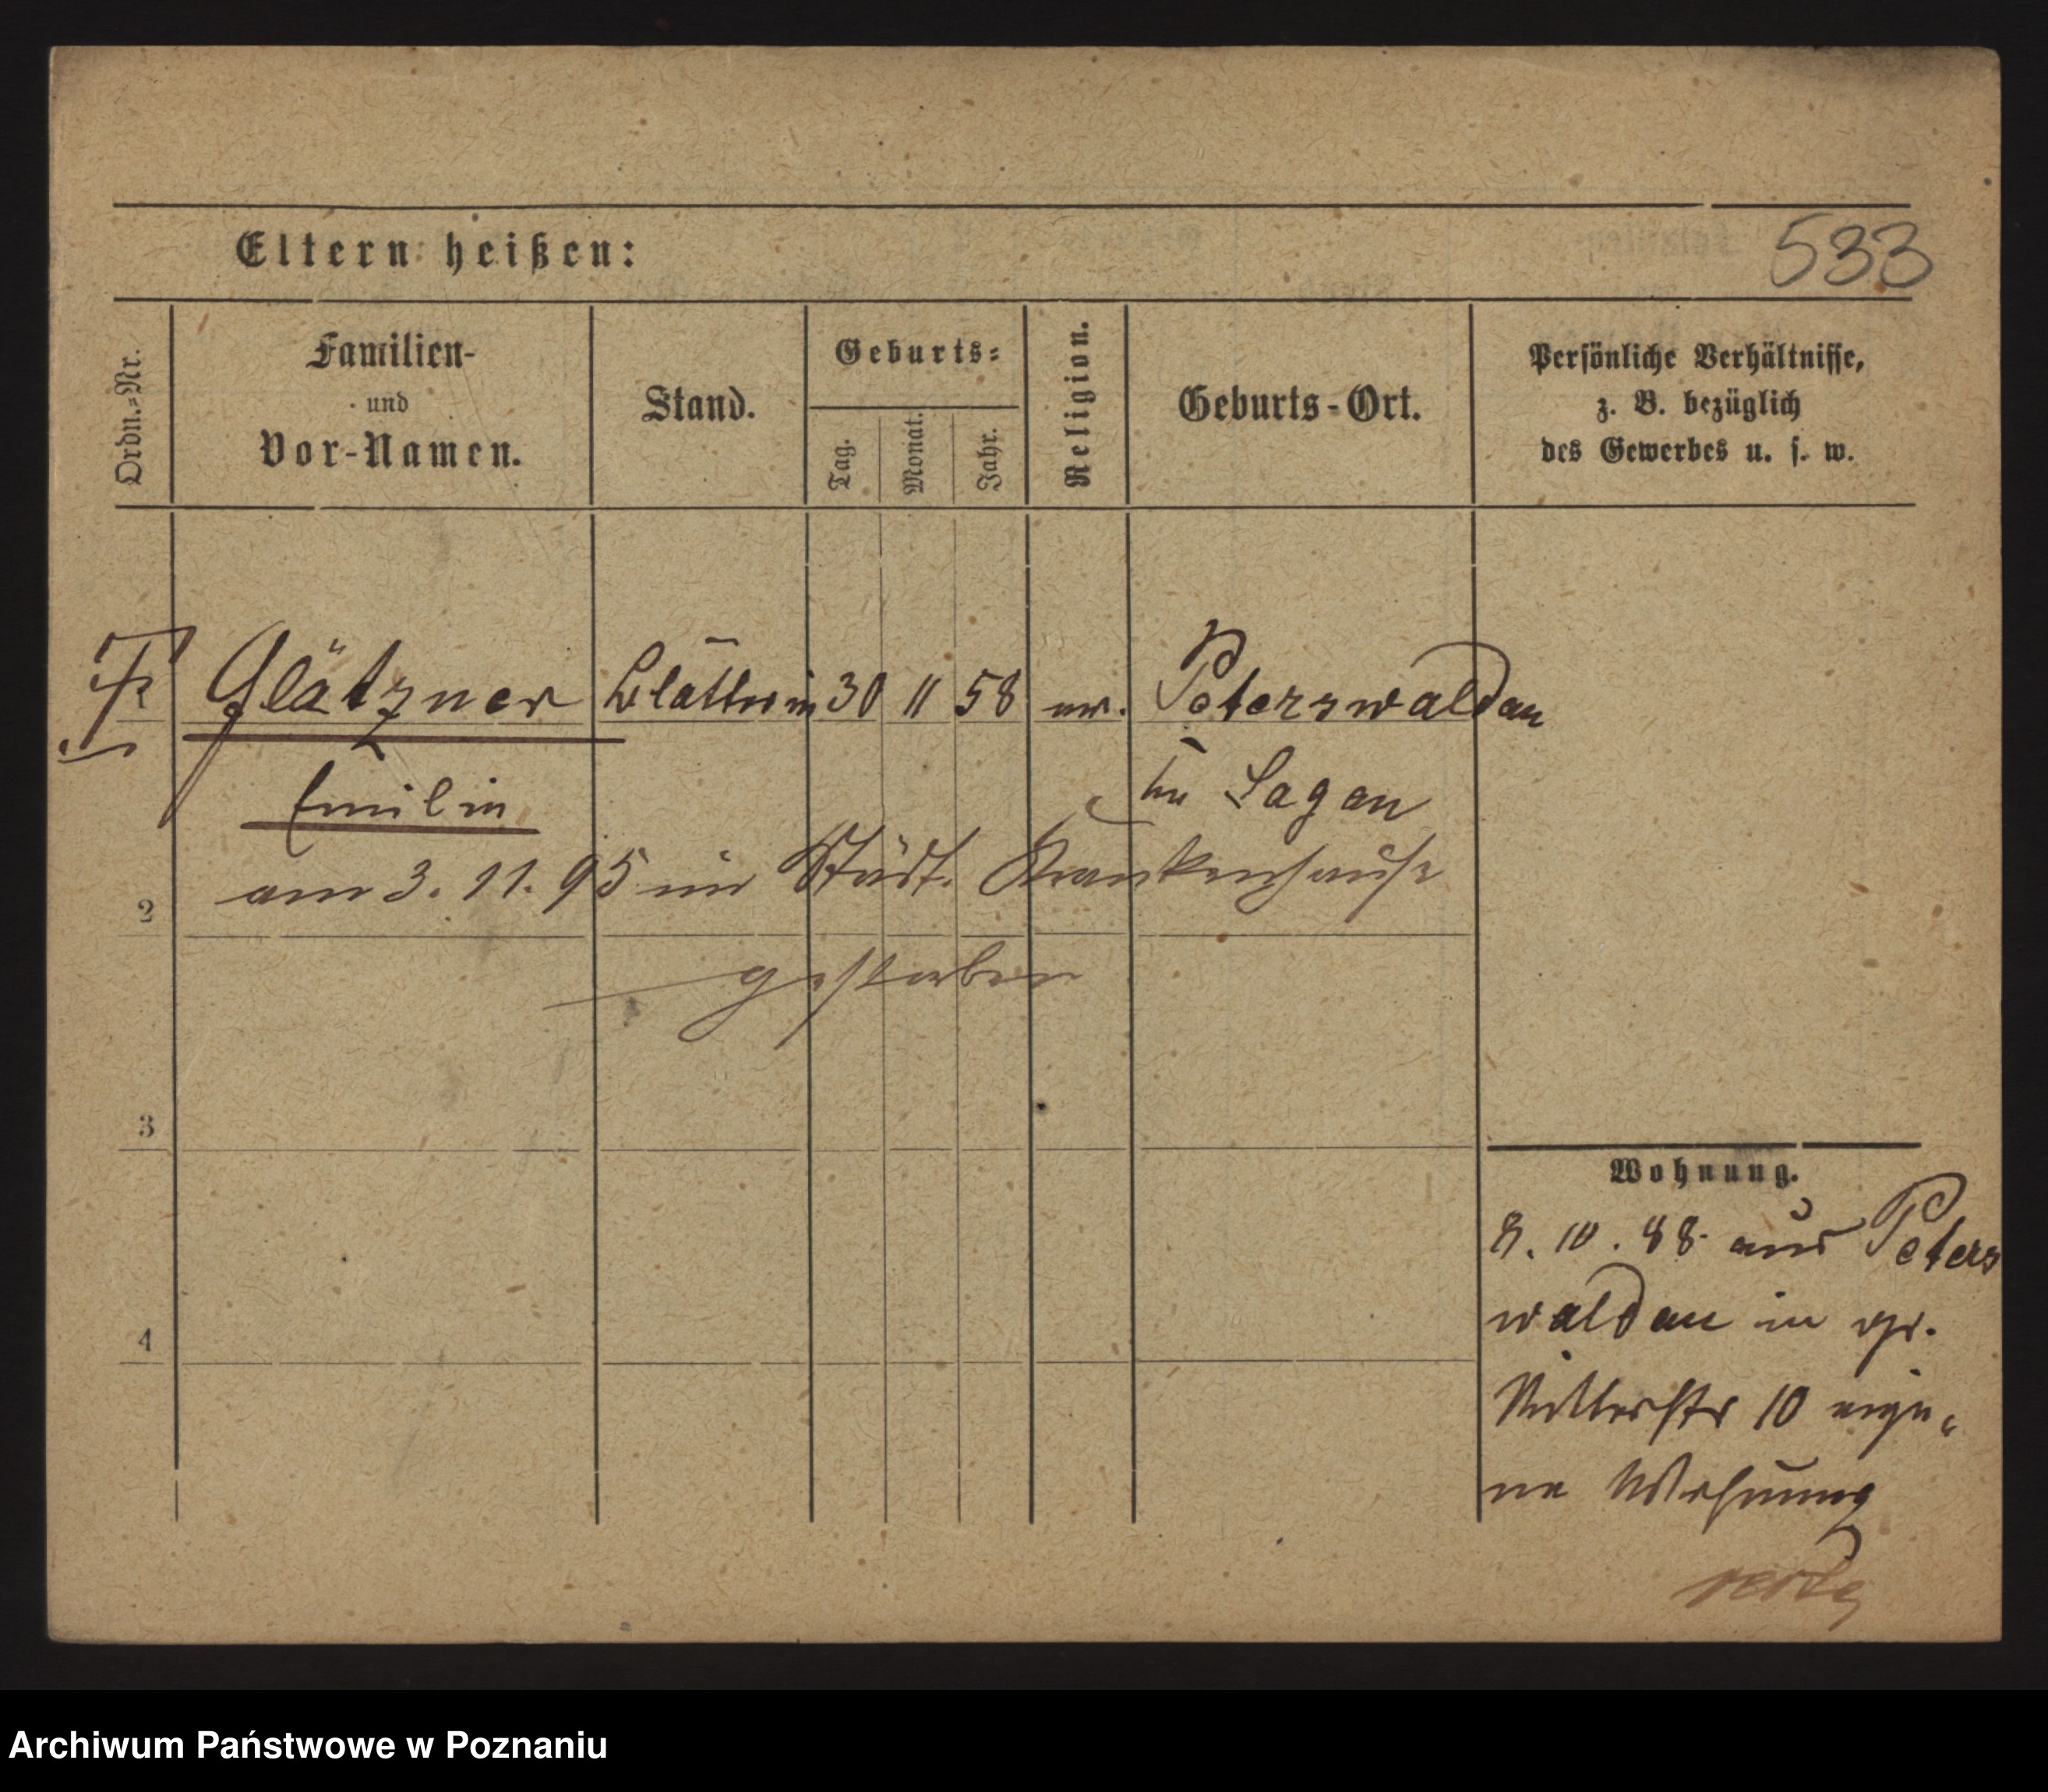 Eltern heißen:
533
Ordn.-Nr.
Familien-
und
Vor-Namen.
Stand.
Geburts-
Tag.
Monat.
Jahr.
Religion.
Geburts-Ort.
Persönliche Verhältnisse,
z. B. bezüglich
des Gewerbes u. s. w.
Frl Glätzner Plätterin 30 11 58 ev. Peterswaldau
Emilie
Kr Sagan
am 3. 11. 95 im Städt. Krankenhause
gestorben
2
3
4
Wohnung.
8. 10. 88. aus Peters
waldau in gr.
Ritterstr 10 eige-
ne Wohnung
Archiwum Państwowe w Poznaniu